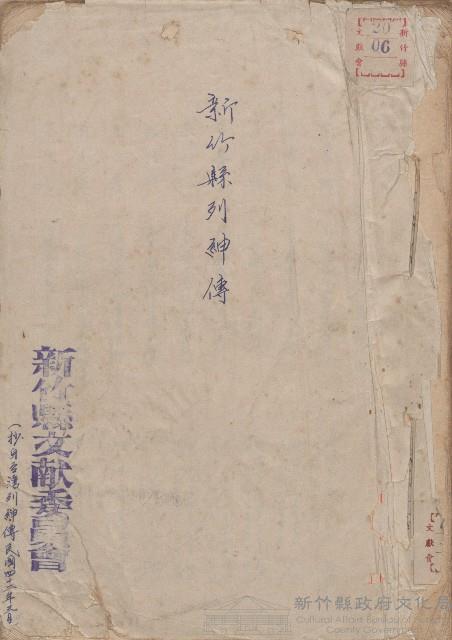 新竹縣
文獻會
20
06
新竹縣列紳傳
新竹縣文献委員會
(抄自台灣列紳傳民國四十二年元月)
文獻會
新竹縣政府文化局
Cultural Affairs Bureau of Hsinchu
County Government